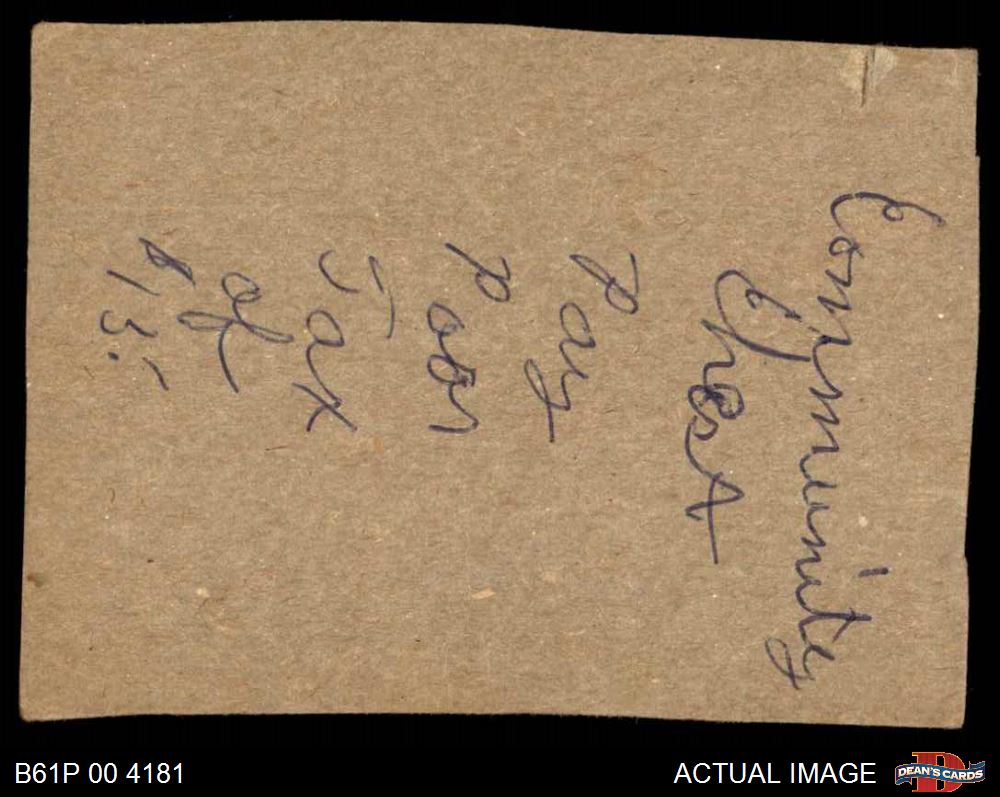 Community
Chest
Pay
Poor
Tax
of
$15.
B61P 00 4181
ACTUAL IMAGE
DEAN'S CARDS